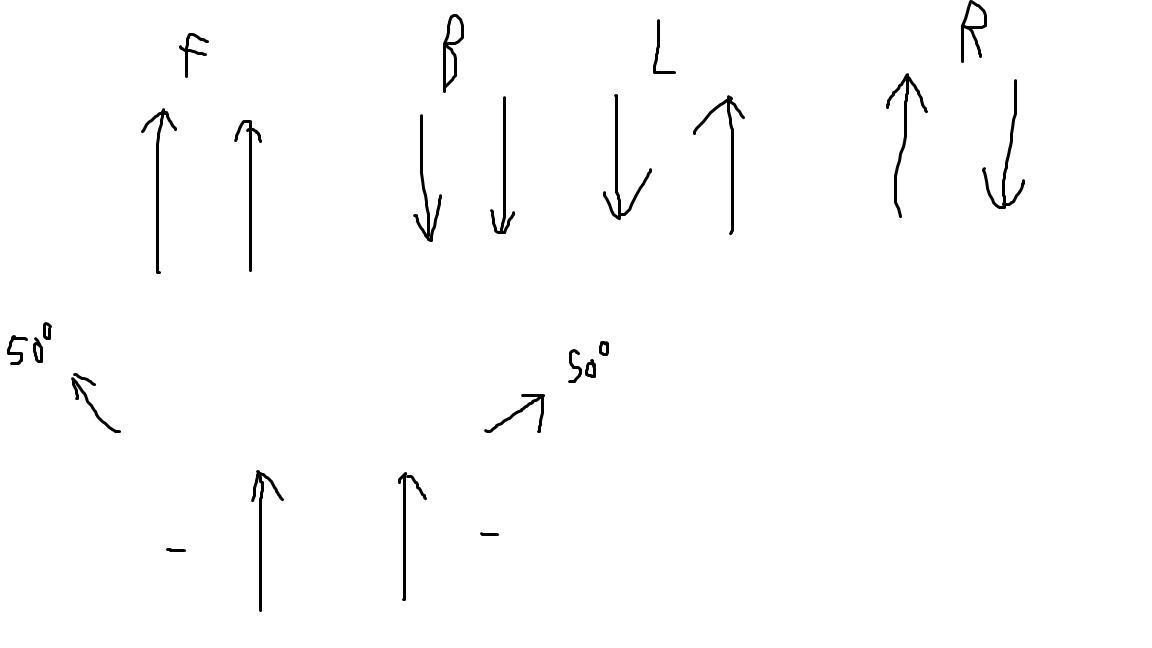 F B L R
50° 50°
- -